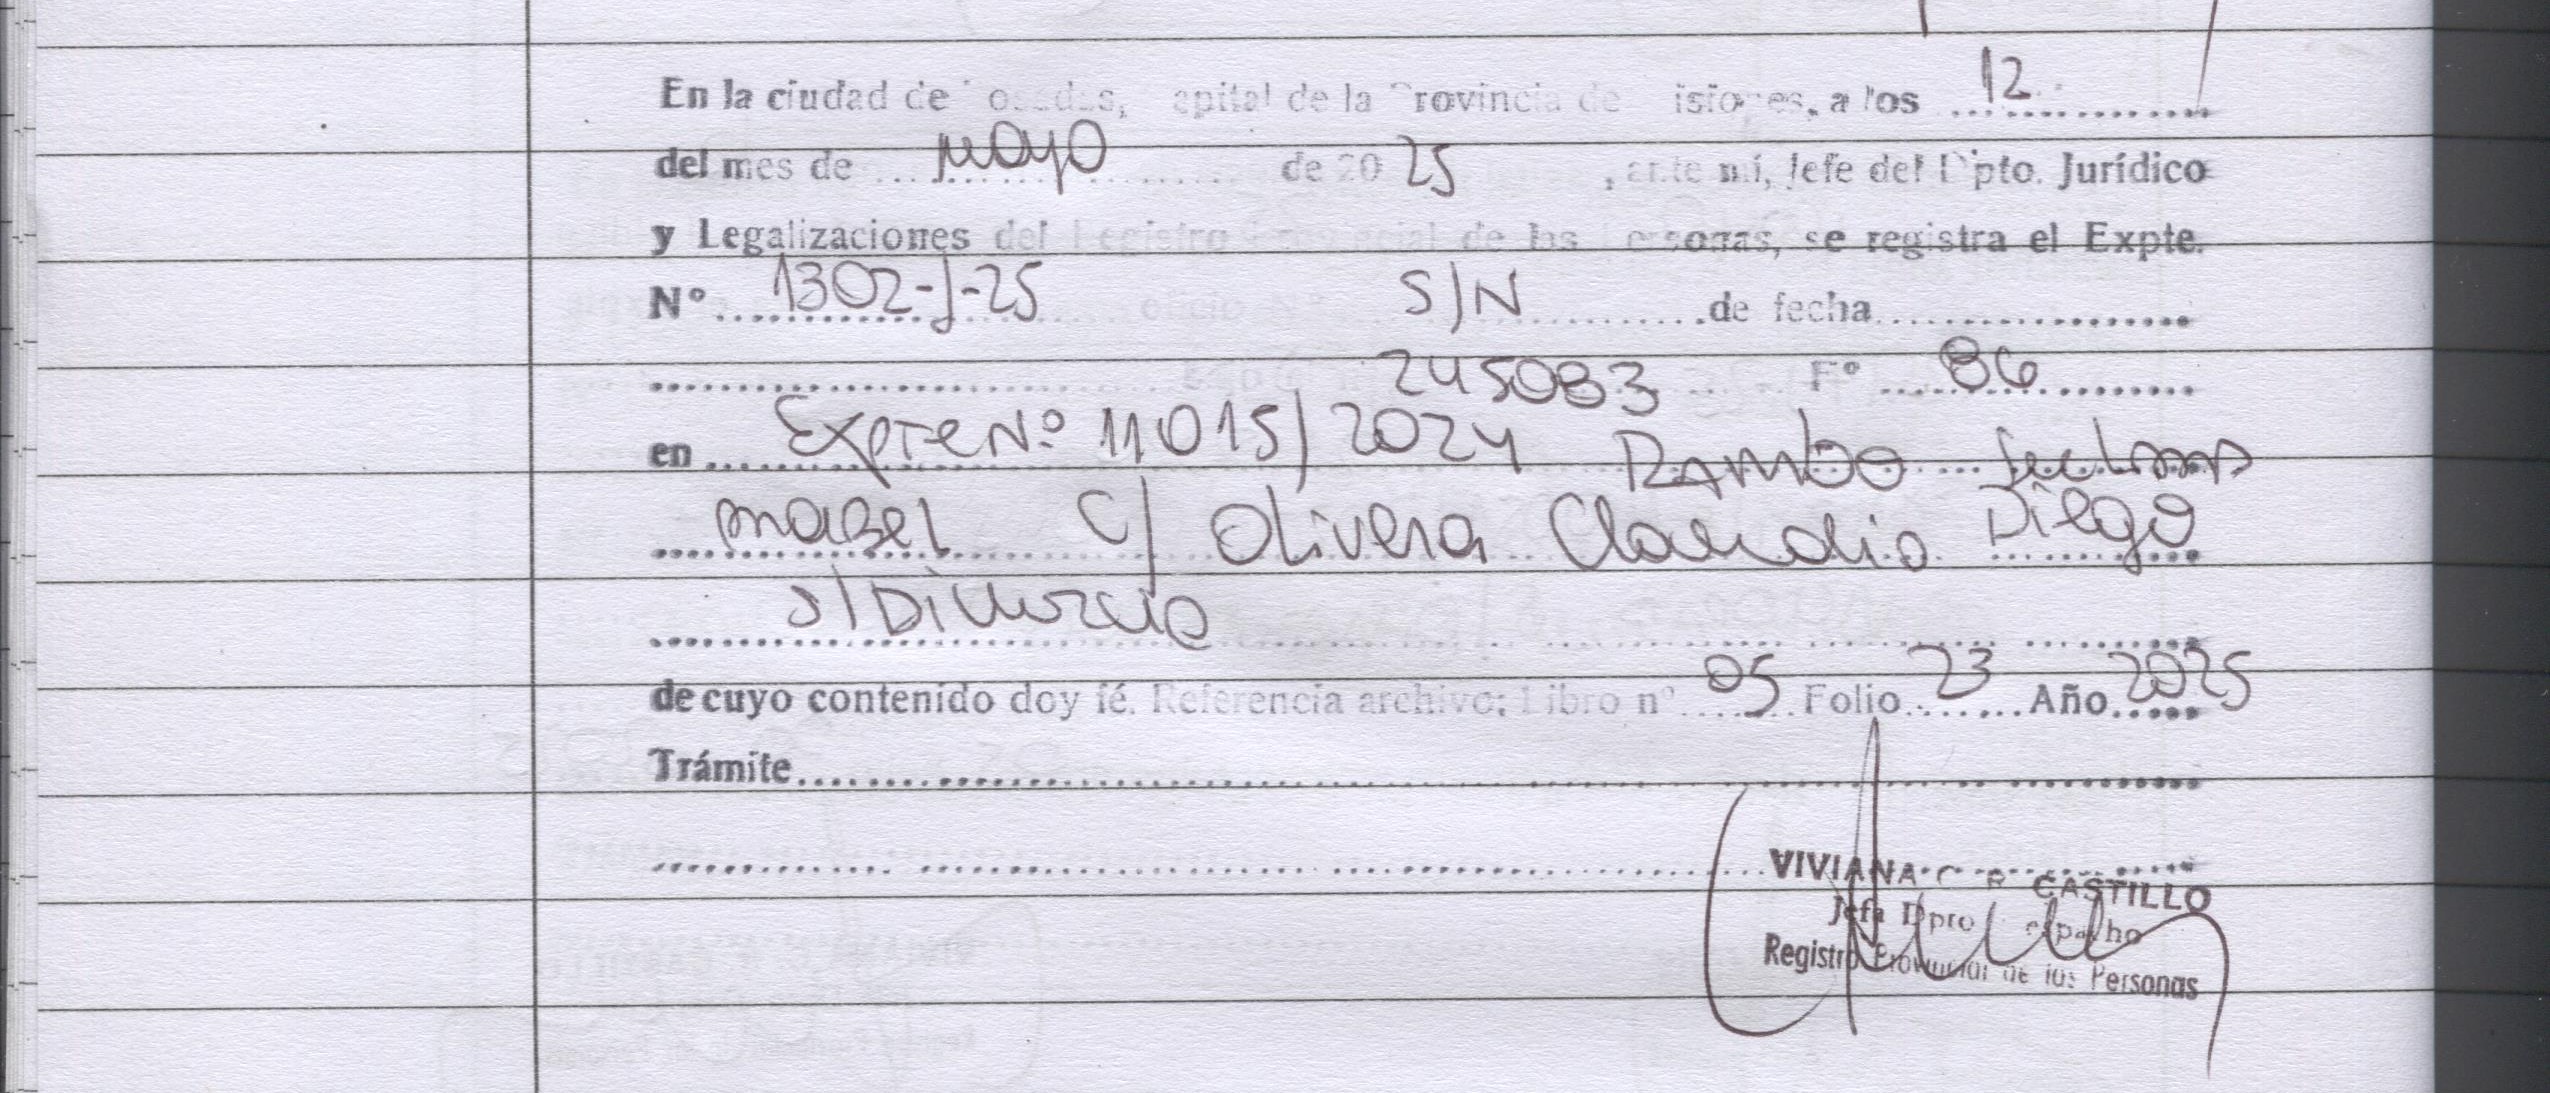 En la ciudad de Posadas, Capital de la Provincia de Misiones, a los 12
del mes de mayo de 2025, ante mí, Jefe del Dpto. Jurídico
y Legalizaciones del Registro Provincial de las Personas, se registra el Expte.
Nº 1302-J-25 S/N de fecha
245083 Fº 86
en Expte Nº 11015/2024 RAMBO
mabel C/ Olivera Claudio Diego
s/Divorcio
de cuyo contenido doy fé. Referencia archivo: Libro nº 05 Folio 23 Año 2025
Trámite
VIVIANA C. R. CASTILLO
Jefa Dpto Despacho
Registro Provincial de las Personas